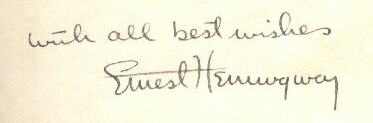 with all best wishes
Ernest Hemingway